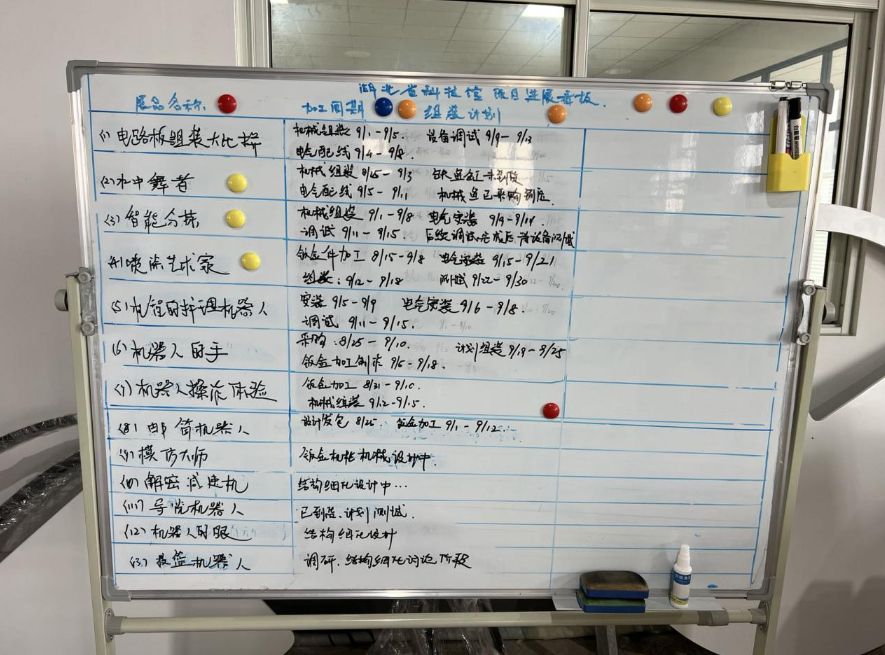 湖北省科技馆 项目进展看板.
展品名称. 加工周期 组装计划
(1) 电路板组装大比拼 机械组装 9/1-9/5. 设备调试 9/9-9/13
电气配线 9/4-9/8.
(2) 水中舞者 机械组装 8/25-9/3
电气配线 9/5-9/11 机械鱼已采购到底.
(3) 智能分拣 机械组装 9/1-9/8 电气安装 9/9-9/14.
调试 9/11-9/15.
(4) 喷漆艺术家 钣金件加工 8/15-9/8 电气安装 9/15-9/21
组装: 9/12-9/18 测试 9/22-9/30
(5) 机智的护理机器人 安装 9/5-9/9 电气安装 9/6-9/8.
调试 9/11-9/15.
(6) 机器人的手 采购: 8/25-9/10. 计划组装 9/19-9/25
钣金加工制作 9/5-9/18.
(7) 机器人操作体验 钣金加工 8/31-9/10.
机械组装 9/12-9/15.
(8) 机器人 设计发包 8/25. 钣金加工 9/1-9/12.
(9) 模仿大师 钣金机柜机械设计中.
(10) 解密减速机 结构细化设计中...
(11) 导览机器人 已到益. 计划测试.
(12) 机器人的眼 结构细化设计
(13) 投篮机器人 调研. 结构细化讨论阶段